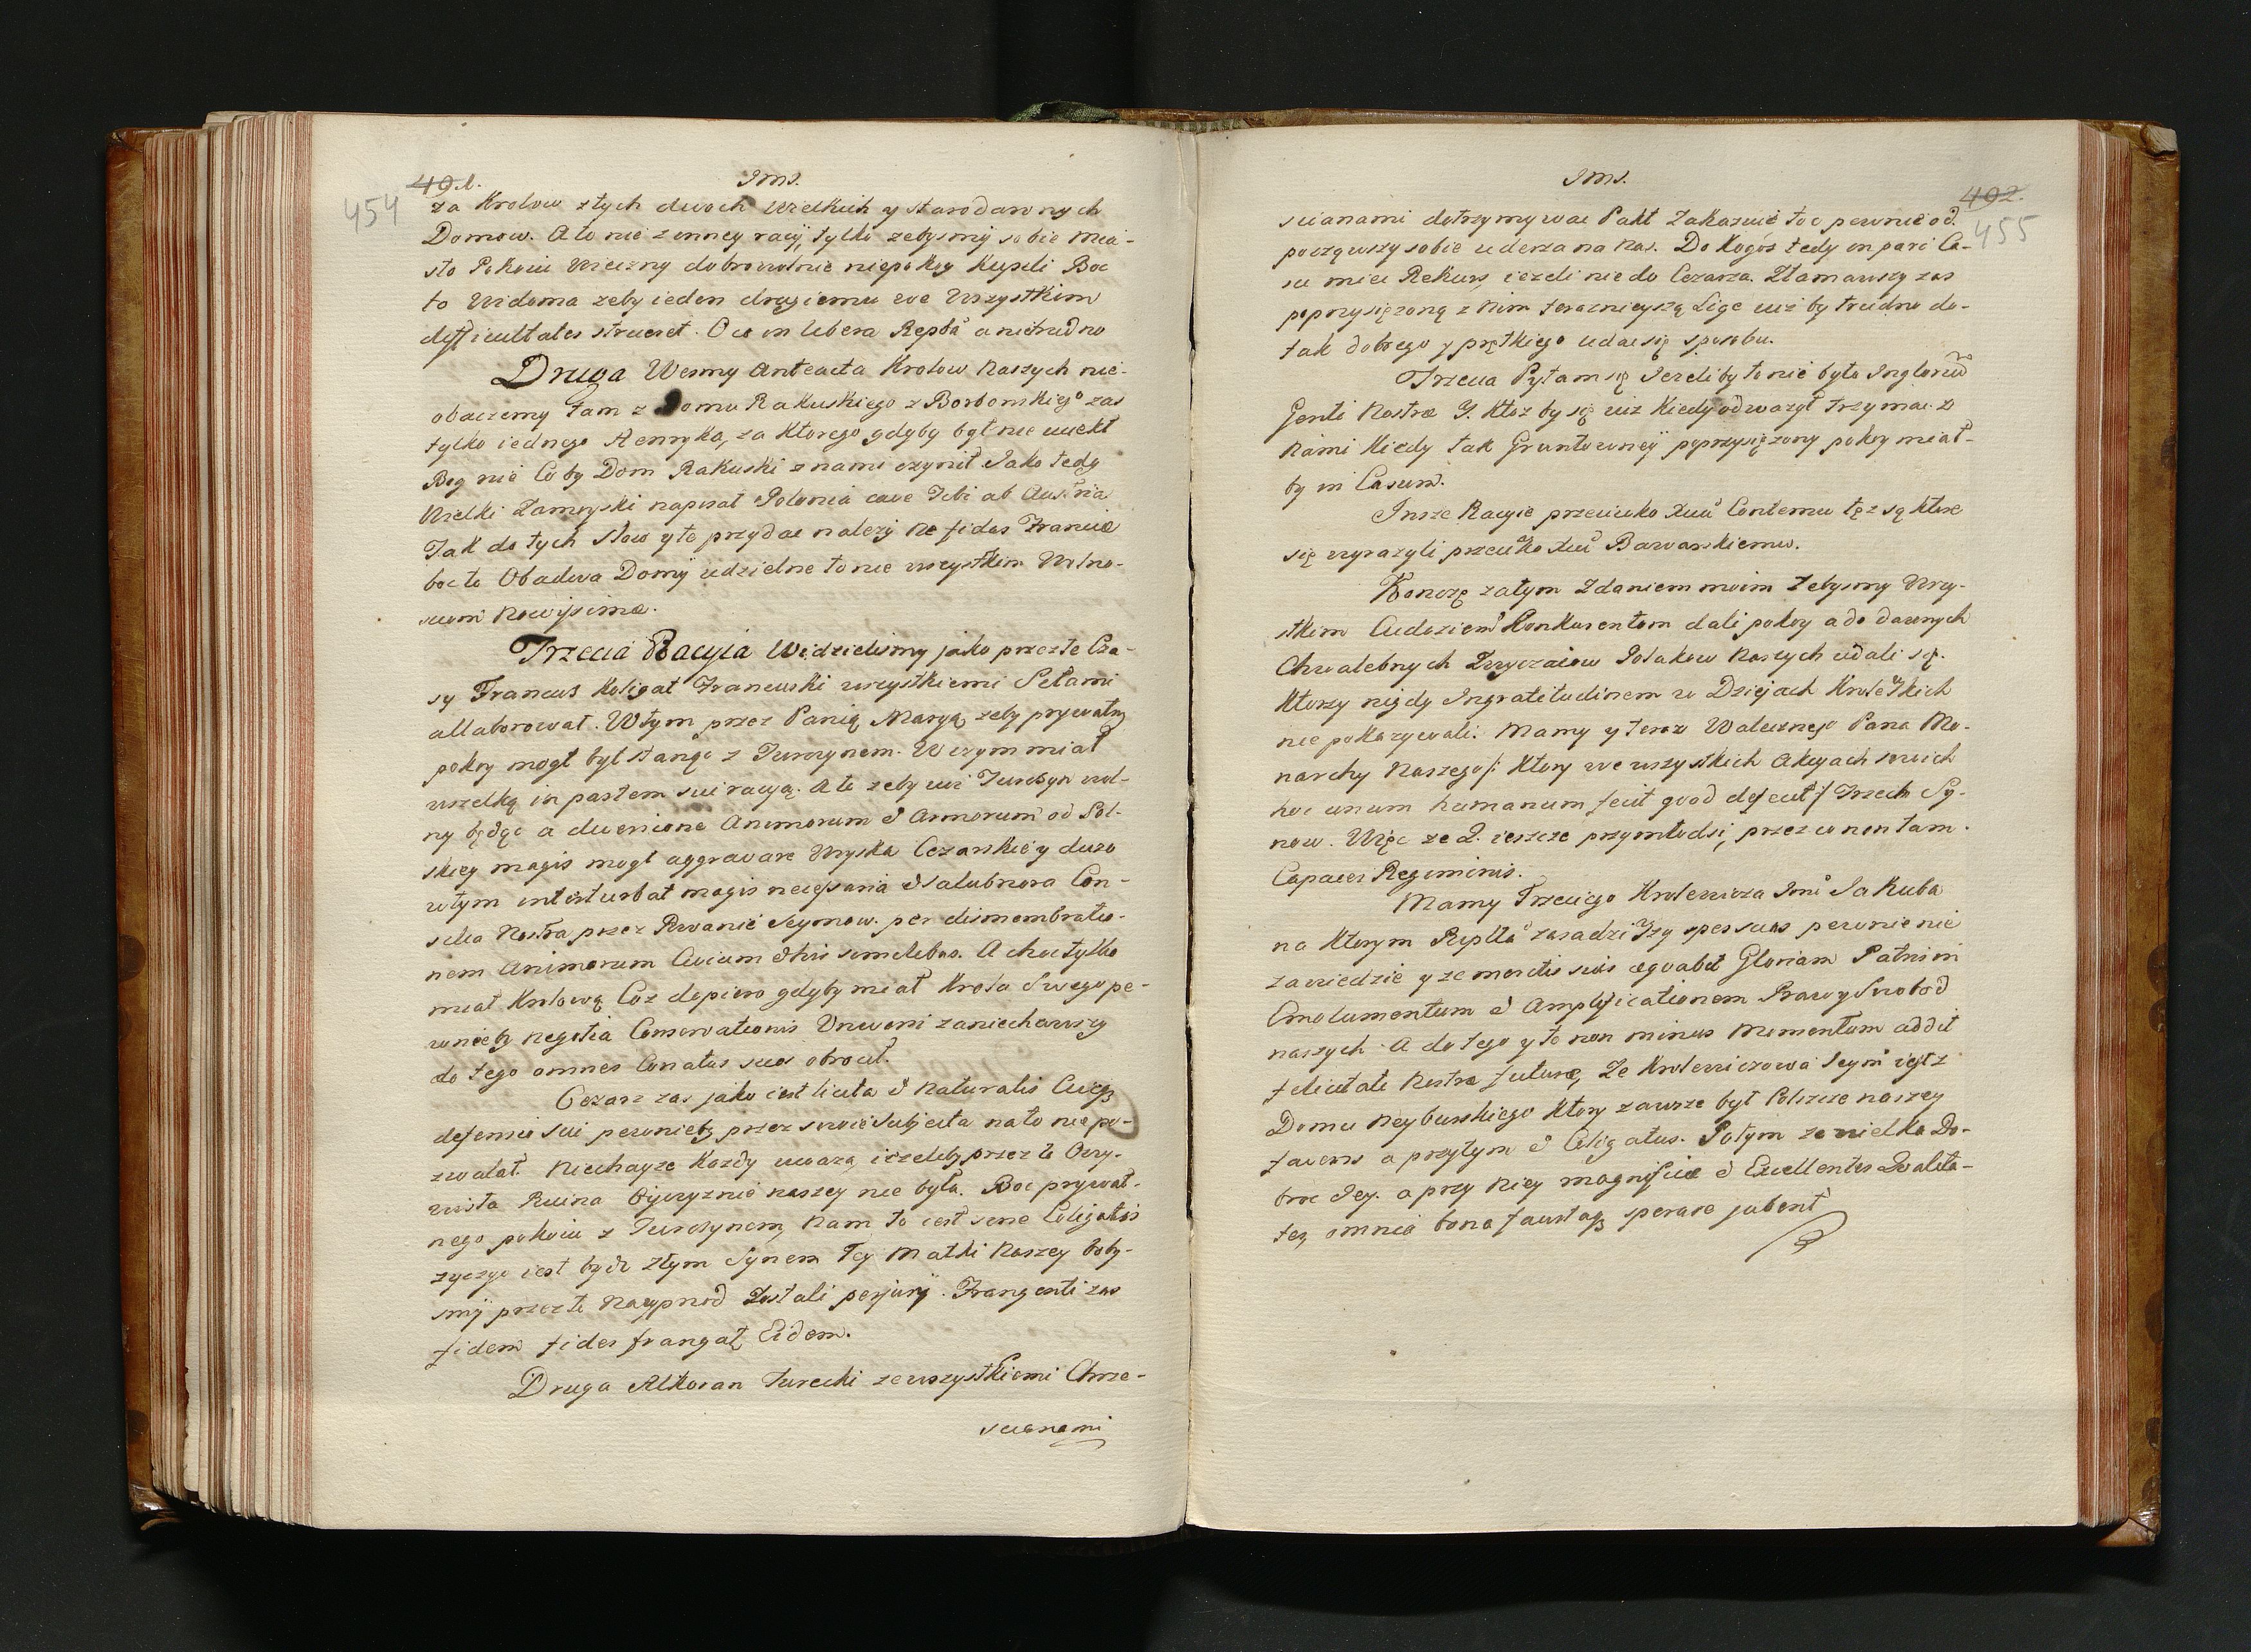 454
491.
Jms.
za Krolow z tych dwoch Wielkich y starodawnych
Domow. A to nie z inney racyi, tylko zebysmy sobie mia-
sto Pokoiu Wieczny dobrowolnie niepokoy kupili Boc
to Widoma zeby ieden drugiemu we Wszystkim
difficultates strueret. O co in libera Repba a nietrudno
Druga Wezmy Anteacta Krolow Naszych nie-
obaczemy tam z Domu Rakuskiego z Borbonskiego zas
tylko iednego Henryka, za Ktorego gdyby był nie uciekł
Bog wie Co by Dom Rakuski z nami czynił Jako tedy
Wielki Zamoyski napisał Polonia cave Tibi ab Austria
Tak do tych słow y to przydac nalezy ne fidas Francia
boc to Obadwa Domy udzielne to nie wszystkim Wolno-
sciom
Trzecia Racyia Widzielismy jako przez te Cza-
sy Francus Koligat Francuski wszystkiemi Siłami
allaborował. W tym przez Panią Maryą, zeby prywatny
pokoy mogł był stanąc z Turczynem. W czym miał
wszelką in partem sui racyą. A to zeby iuz Turczyn wol-
ny będąc a diversione Animorum & Armorum od Pol-
skiey magis mogł aggravare Woyska Cezarskie y duzo
w tym interturbat magis necessaria & salubriora Con-
silia Nostra przez Rwanie Seymow. per dismembratio-
nem Animorum Civium & his similibus. A choc tylko
miał Krolową Coz dopiero gdyby miał Krola Swego pe-
wnieby negotia Conservationis Universi zaniechawszy
do tego omnes Conatus suos obrocił.
Cezarz zas jako iest licita & Naturalis Cuiq3
defensio sui pewnieby przez swoie Subjecta na to nie po-
zwalał. Niechayze Kazdy uwaza iezeliby przez to Oczy-
wista Ruina Oyczyznie naszey nie była. Boc prywat-
nego pokoiu z Turczynem, Nam to iest sine Coligatis
zyczyc iest bydz złym Synem Tey Matki Naszey boby-
smy przez to Nayprzod Zostali perjurij. Frangenti zas
fidem fides frangat Eidem.
Druga Alkoran Turecki ze wszystkiemi Chrze-
scianami
Jms.
492.
455
scianami dotrzymywac Pakt Zakazuie toc pewnie od-
począwszy sobie uderza na Nas. Do Kogoz tedy in pari Ca-
su miec Rekurs iezeli nie do Cezarza. Złamawszy zas
poprzysięzoną z Nim teraznieyszą Ligę iuz by trudno do-
tak dobrego y prętkiego udac się sposobu.
Trzecia Pytam się Jezeliby to nie było Inglorium
Genti Nostræ Y. Ktoz by się iuz Kiedy odwazył trzymac z
Nami Kiedy tak Gruntowney poprzysięzony pokoy miał-
by in Casum.
Insze Racyie przeciwko Xciu Contemu tez są ktore
się wyrazyli przeciwko Xciu Bawarskiemu.
Konczę zatym Zdaniem moim Zebysmy Wszy-
stkim Cudoziem. Konkurentom dali pokoy a do dawnych
Chwalebnych Zwyczaiow Polakow Naszych udali się.
Ktorzy nigdy Ingratitudinem w Dziejach Krolewskich
nie pokazywali. Mamy y teraz Walecznego Pana Mo-
narchy Naszego/: Ktory we wszystkich Akcyach swoich
hoc unum humanum fecit quod defecit :/ Trzech Sy-
now. Więc ze 2. ieszcze przymłodsi, przez co non tam.
Capaces Regiminis.
Mamy Trzeciego Krolewicza Jmci Jakuba
na Ktorym Rzptta zasadziwszy spes suas pewnie nie
zawiedzie y ze meritis suis æquabit Gloriam Patriæ in
Emolumentum & Amplificationem Praw y Swobod
naszych. A do tego y to non minus Momentum addit
felicitati Nostræ futuræ, Ze Krolewiczowa Jeymc iest z
Domu Neyburskiego Ktory zawsze był Polszcze naszey
favens a przytym & Coligatus. Potym ze wielka Do-
broc Jey. a przy Niey magnificæ & Excellentes Qualita-
tes, omnia bona faustaq3 sperare jubent